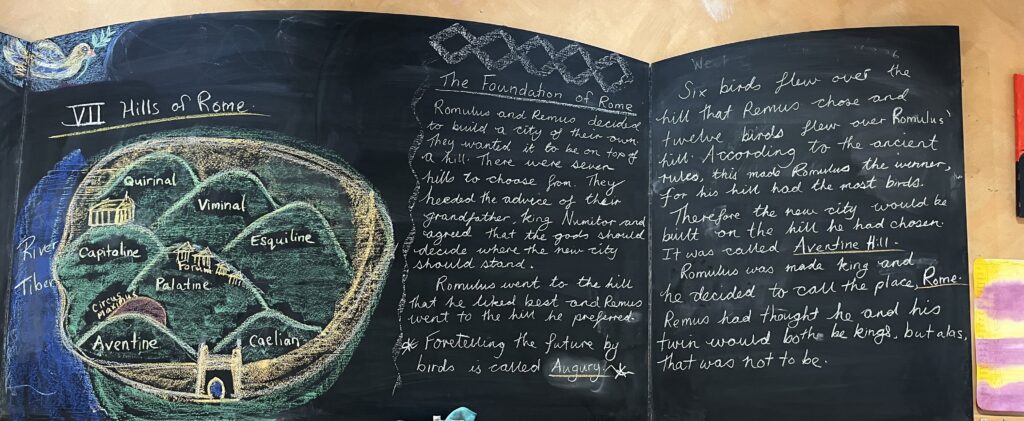 VII Hills of Rome.
Quirinal
Viminal
Esquiline
Capitaline
Forum
Palatine
Circus
Maximus
Aventine
Caelian
River
Tiber
The Foundation of Rome
Romulus and Remus decided
to build a city of their own.
They wanted it to be on top of
a hill. There were seven
hills to choose from. They
heeded the advice of their
grandfather, King Numitor and
agreed that the gods should
decide where the new city
should stand.
Romulus went to the hill
that he liked best and Remus
went to the hill he preferred.
* Foretelling the future by
birds is called Augury. *
Six birds flew over the
hill that Remus chose and
twelve birds flew over Romulus'
hill. According to the ancient
rules, this made Romulus the winner,
for his hill had the most birds.
Therefore the new city would be
built on the hill he had chosen.
It was called Aventine Hill.
Romulus was made king and
he decided to call the place, Rome.
Remus had thought he and his
twin would both be kings, but alas,
that was not to be.